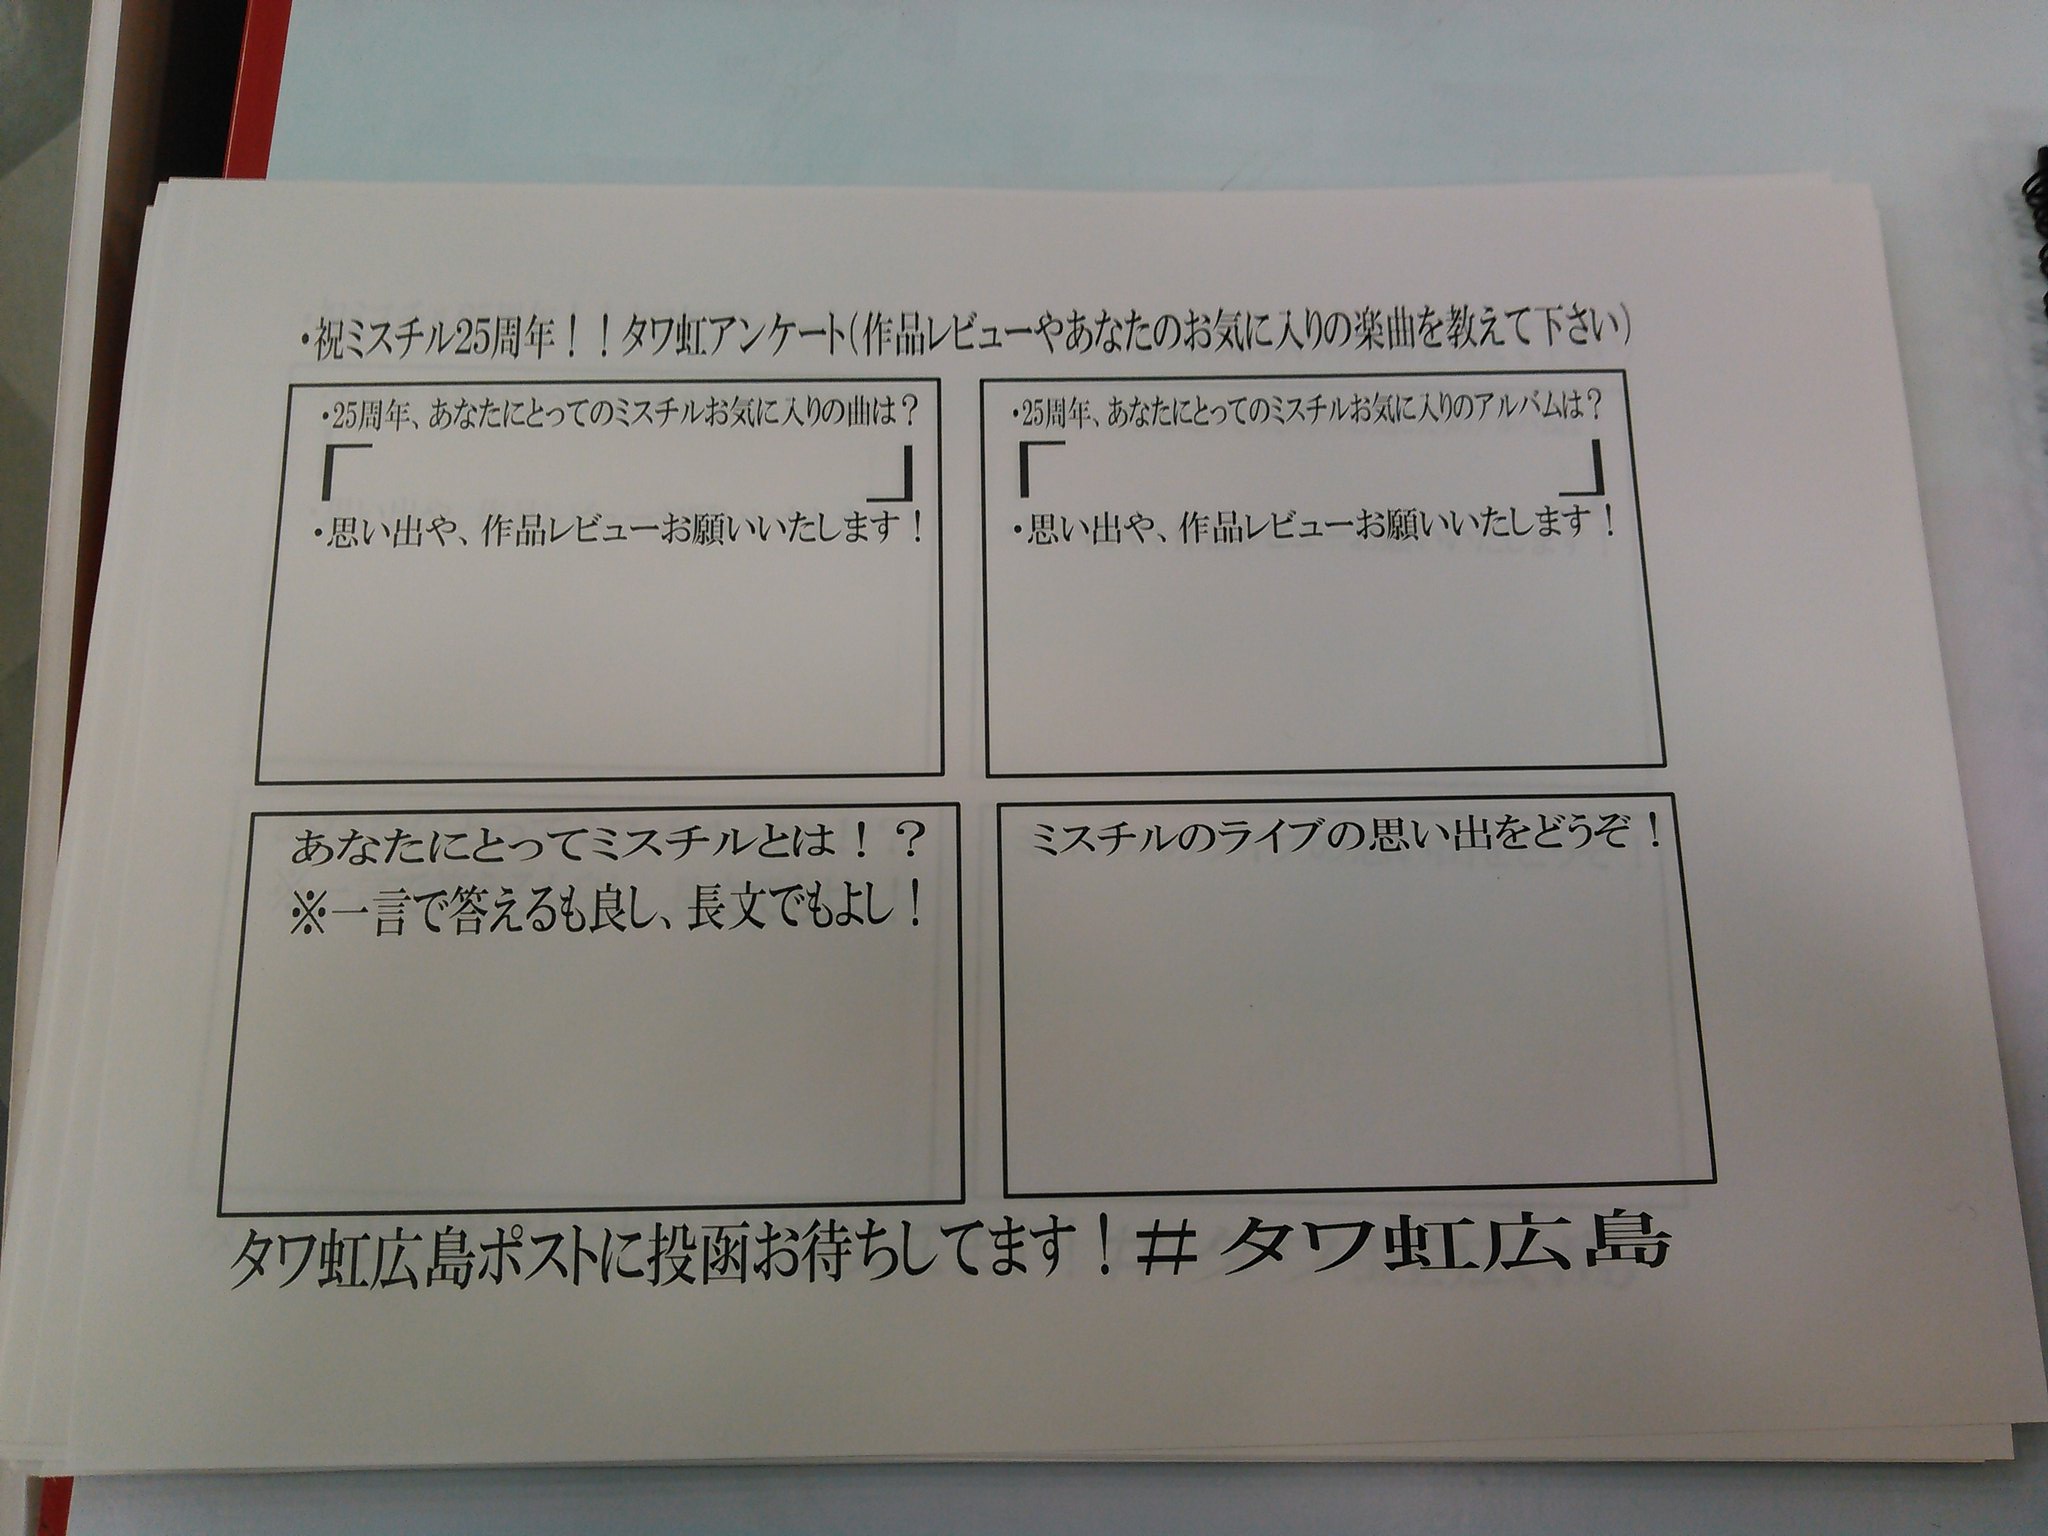 ・祝ミスチル25周年！！タワ虹アンケート(作品レビューやあなたのお気に入りの楽曲を教えて下さい)
・25周年、あなたにとってのミスチルお気に入りの曲は？
「　　　　　　　　」
・思い出や、作品レビューお願いいたします！
・25周年、あなたにとってのミスチルお気に入りのアルバムは？
「　　　　　　　　」
・思い出や、作品レビューお願いいたします！
あなたにとってミスチルとは！？
※一言で答えるも良し、長文でもよし！
ミスチルのライブの思い出をどうぞ！
タワ虹広島ポストに投函お待ちしてます！＃タワ虹広島